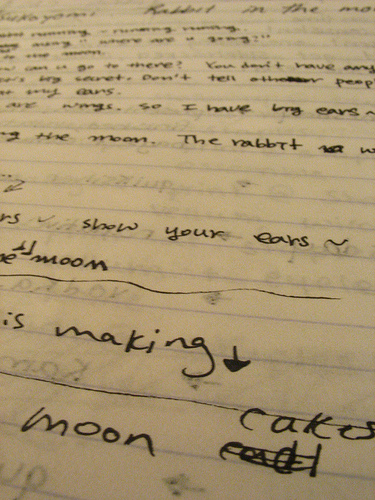 Rabbit in the mo
running - running running.
away, "where are u going?"
to the moon.
can u go to there? You don't have any
big secret. Don't tell other peop
my ears.
are wings. so I have big ears~
ng the moon. The rabbit w
rs ~ show your ears ~
moon
is making ↓
cakes
moon